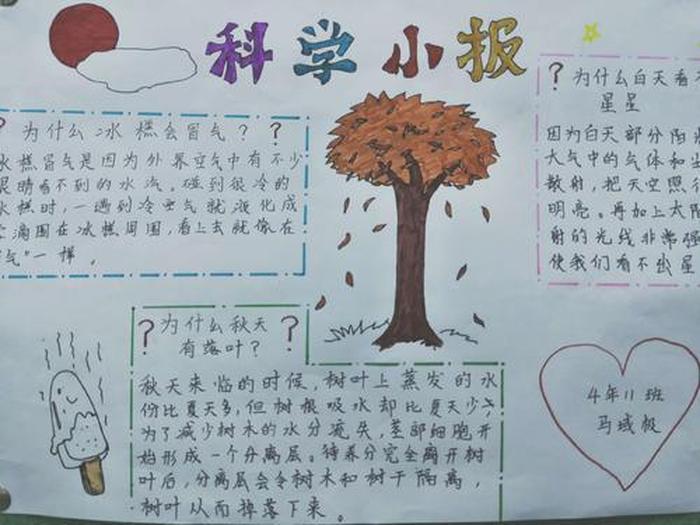 科学小报
？为什么冰糕会冒气？？
冰糕冒气是因为外界空气中有不少
眼睛看不到的水汽。碰到很冷的
冰糕时，一遇到冷空气就液化成
滴围在冰糕周围，看上去就像在
气"一样。
？为什么白天看
星星
因为白天部分阳
大气中的气体和
散射，把天空照
明亮。再加上太阳
射的光线非常强
使我们看不出星
？为什么秋天？
有落叶？
秋天来临的时候，树叶上蒸发的水
份比夏天多，但树根吸水却比夏天少，
为了减少树木的水分流失，茎部细胞开
始形成一个分离层。待养分完全离开树
叶后，分离层会令树木和树干隔离，
树叶从而掉落下来。
4年11班
马域极